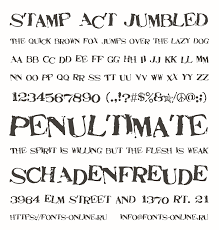 STAMP ACT JUMBLED
THE QUICK BROWN FOX JUMPS OVER THE LAZY DOG
AA BB CC DD EE FF GG HH II JJ KK LL MM
NN OO PP QQ RR SS TT UU VV WW XX YY ZZ
1234567890 (,.!?#$%&*~/©@:;)
PENULTIMATE
THE SPIRIT IS WILLING BUT THE FLESH IS WEAK
SCHADENFREUDE
3964 ELM STREET AND 1370 RT. 21
HTTPS://FONTS-ONLINE.RU INFO@FONTS-ONLINE.RU